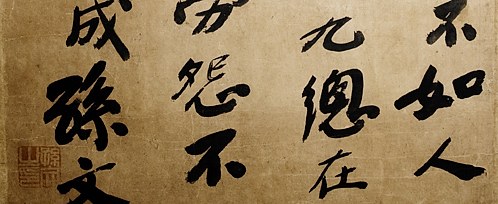 不如人
九總在
勞怨不
成孫文